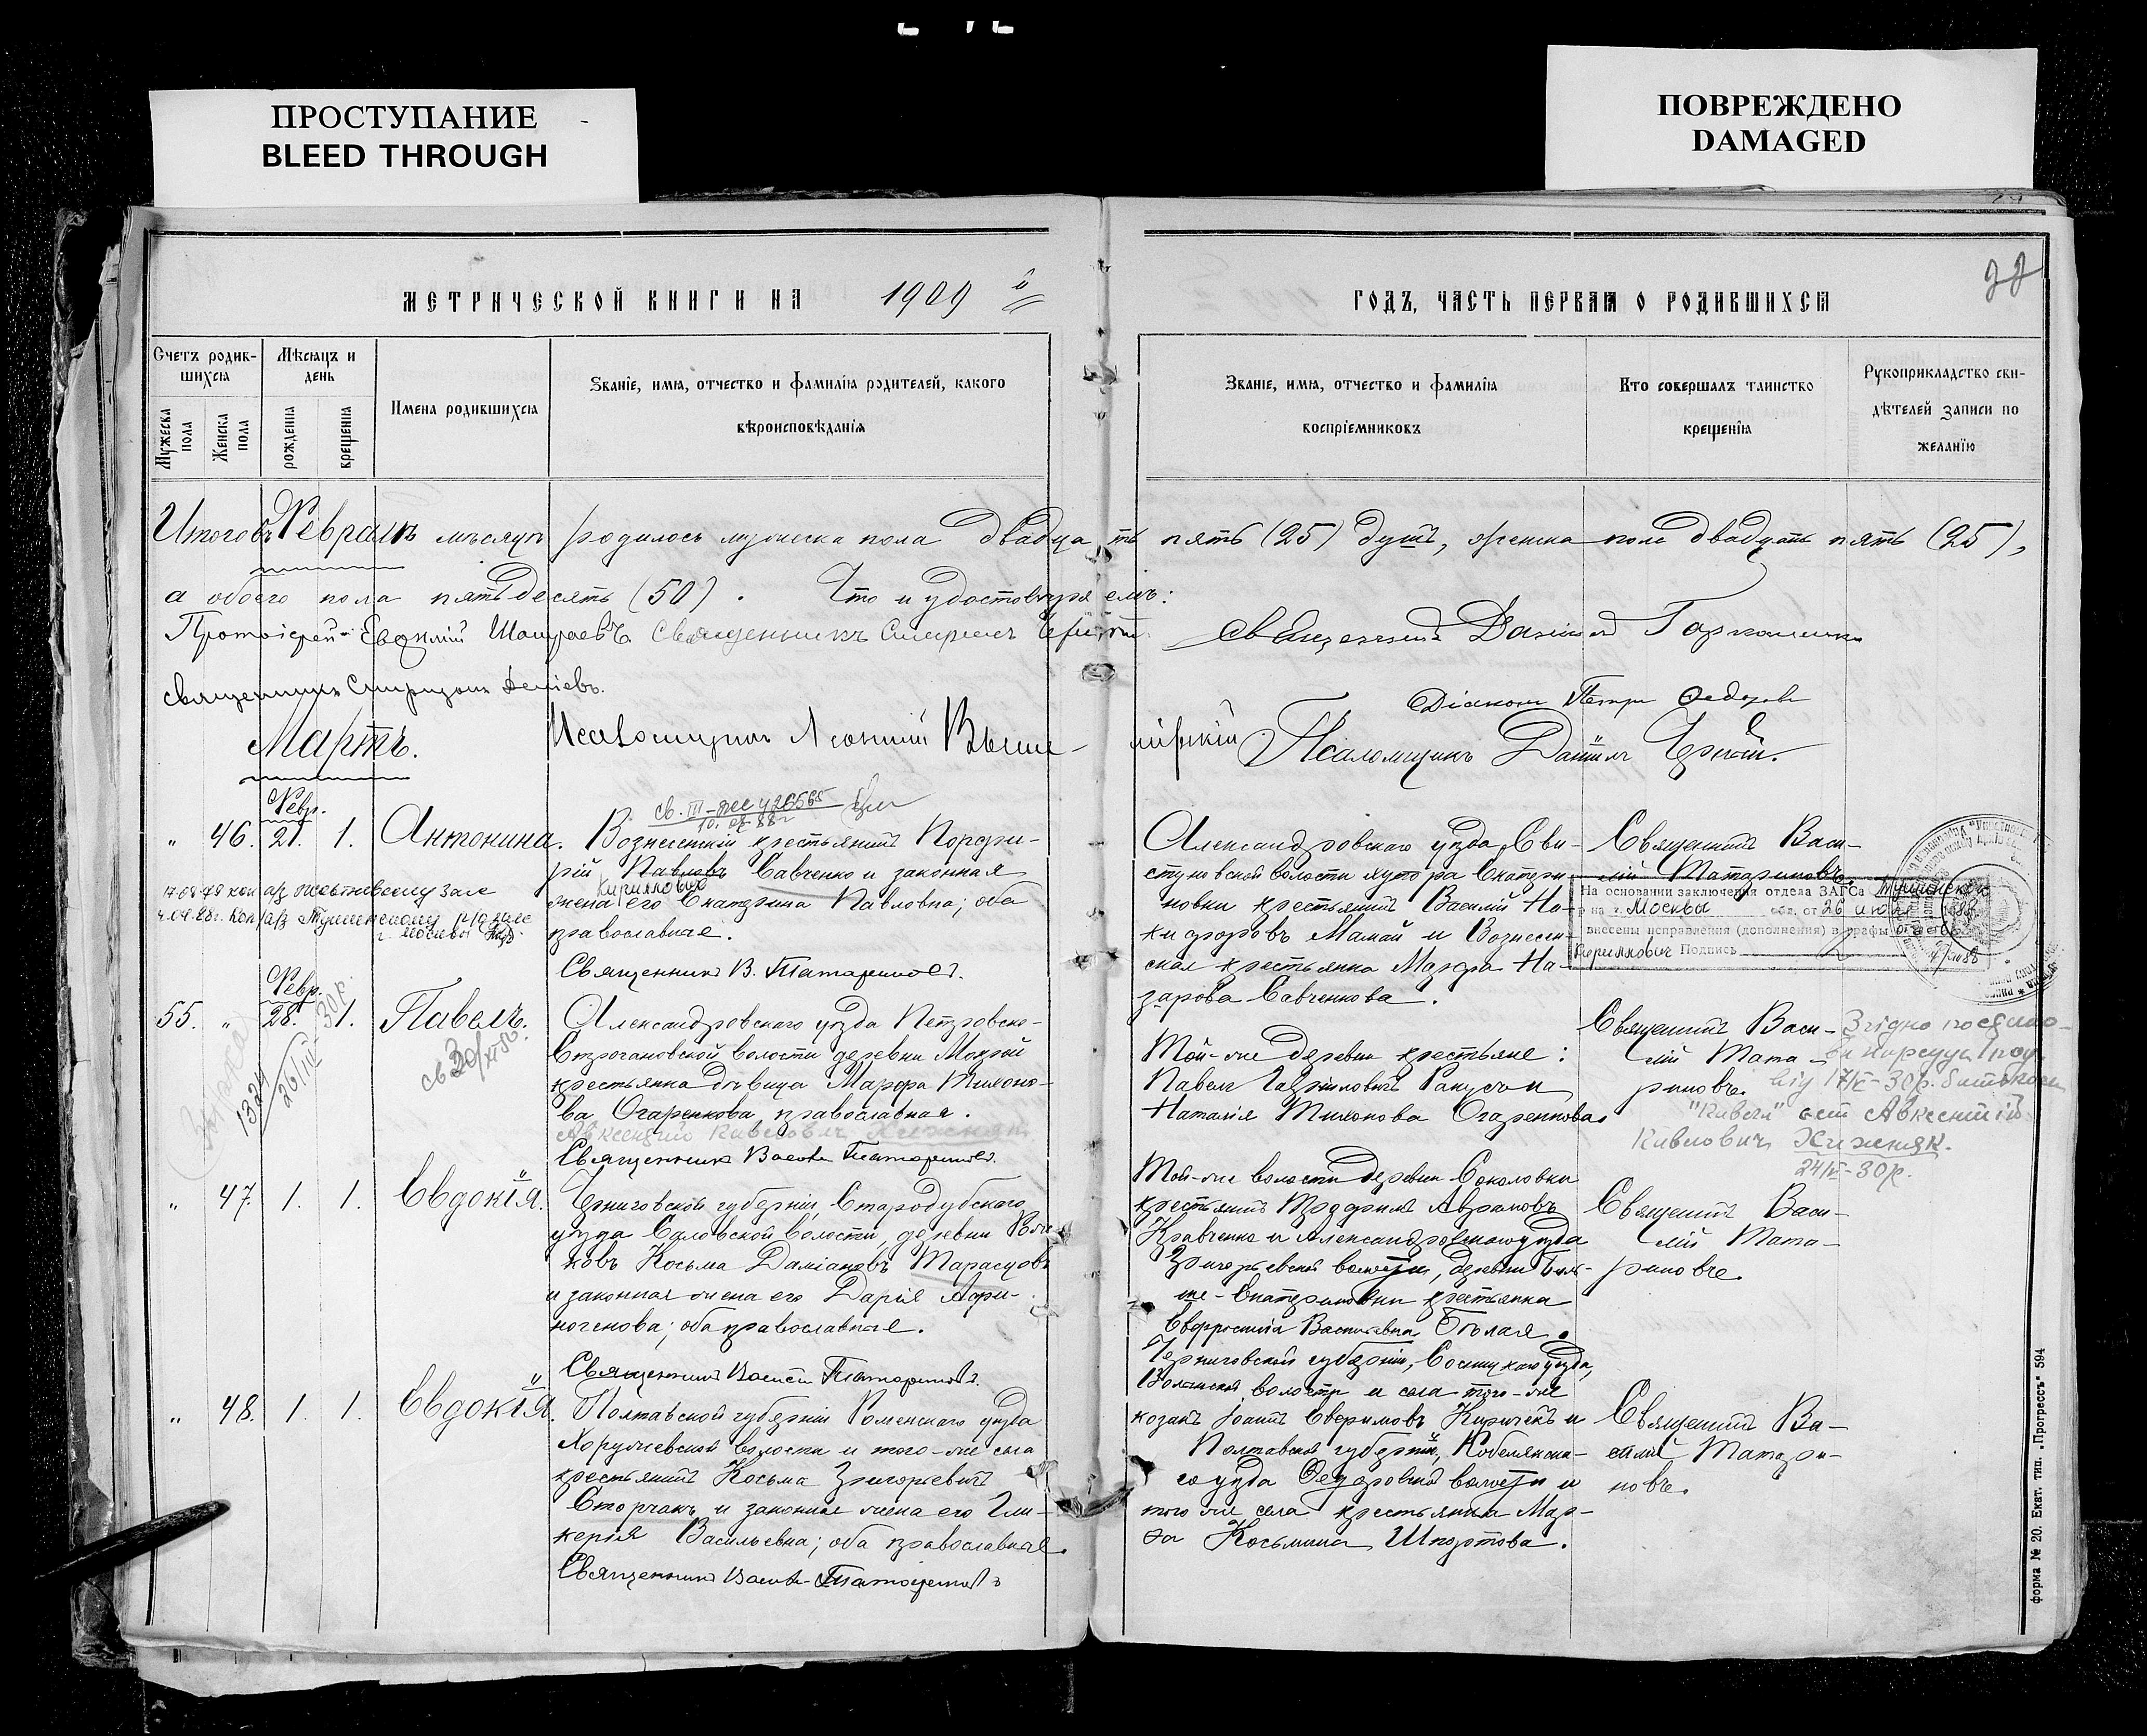 ПРОСТУПАНИЕ
BLEED THROUGH
ПОВРЕЖДЕНО
DAMAGED
МЕТРИЧЕСКОЙ КНИГИ НА 1909 й
Счетъ родив-
шихся
Мѣсяцъ и
день
Мужеска
пола
Женска
пола
рожденія
крещенія
Имена родившихся
Званіе, имя, отчество и фамилія родителей, какого
вѣроисповѣданія
ГОДЪ, ЧАСТЬ ПЕРВАЯ О РОДИВШИХСЯ
Званіе, имя, отчество и фамилія
воспріемниковъ
Кто совершалъ таинство
крещенія
Рукоприкладство сви-
дѣтелей записи по
желанію
Итого въ Февралѣ мѣсяцѣ родилось мужеска пола двадцать пять (25) душъ, женска пола двадцать пять (25),
а обоего пола пятьдесятъ (50). Что и удостовѣряемъ:
Протоіерей Священникъ
Священникъ Даніилъ
Священникъ Спиридонъ
Діаконъ Петръ Федоровъ
Мартъ.
Псаломщикъ Леонтій Выши-
мірскій Псаломщикъ Даніилъ
Февр.
" 46. 21. 1. Антонина.
Вознесенскій крестьянинъ Порфи-
рій Павловъ Савченко и законная
Кириллович
жена его Екатерина Павловна; оба
православные.
Священникъ В. Татариновъ.
Александровскаго уѣзда, Сви-
стуновской волости хутора Екатери-
новки крестьянинъ Василій Ни-
кифоровъ Мамай и Вознесен-
ская крестьянка Марфа На-
зарова Савченкова.
Священникъ Васи-
лій Татариновъ.
На основании заключения отдела ЗАГСа Тушинского
р-на г. Москвы обл. от 26 июля 1988
внесены исправления (дополнения) в графы отчество
Кириллович Подпись
Февр.
55. " 28. 1. Павелъ.
1324
26/III
Александровскаго уѣзда Петровско-
Строгановской волости деревни Мокрой
крестьянка дѣвица Марфа Тихоно-
ва Огаренкова, православная.
Священникъ Василій Татариновъ.
Той-же деревни крестьяне:
Павелъ Гавриловичъ и
Наталія Тихонова Огаренкова
Священникъ Васи-
лій Тата-
риновъ.
Згідно
17/V-30р.
"Павел" Авксентій
Павлович Хижняк.
24/V-30р.
" 47. 1. 1. Евдокія.
Черниговской губерніи, Стародубскаго
уѣзда волости, деревни
Косьма Даміановъ Тарасуовъ
и законная жена его Дарія Афи-
ногенова; оба православные.
Священникъ Василій Татариновъ.
Той-же волости деревни Соколовки
крестьянинъ Аврамовъ
Кравченко и Александровскаго уѣзда
Григорьевской волости, деревни
Екатериновки крестьянка
Евфросинія Васильевна Бѣлая.
Священникъ Васи-
лій Тата-
риновъ.
" 48. 1. 1. Евдокія.
Полтавской губерніи Роменскаго уѣзда
Хоружевской волости и того-же села
крестьянинъ Косьма Григорьевичъ
Сторчакъ и законная жена его Гли-
керія Васильевна; оба православные.
Священникъ Василій Татариновъ
Черниговской губерніи, уѣзда,
волости и села того-же
козакъ Іоаннъ Киричекъ и
Полтавской губерніи, Кобелякска-
го уѣзда Федоровской волости и
того же села крестьянка Мар-
фа Косьмина Шпортова.
Священникъ Ва-
силій Татари-
новъ.
форма № 20. Екат. тип. „Прогрессъ" 594